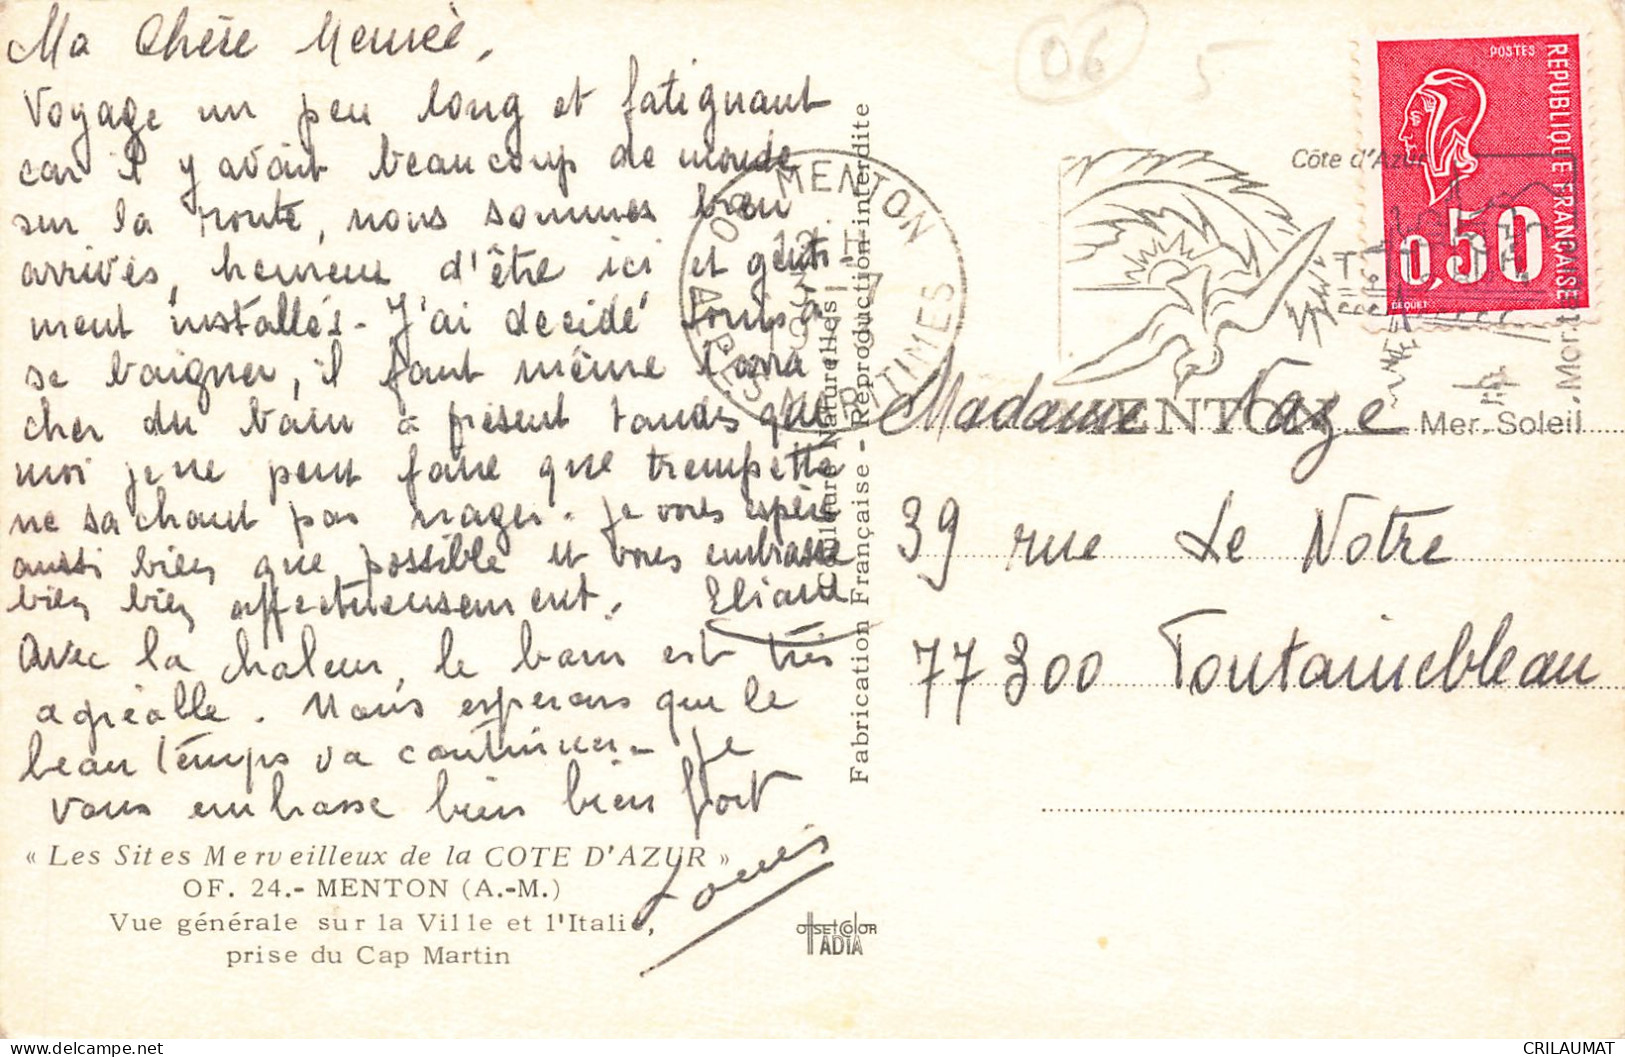 Ma Chère Mémée,
Voyage un peu long et fatiguant
car il y avait beaucoup de monde
sur la route, nous sommes bien
arrivés, heureux d'être ici et genti-
ment installés - J'ai decidé Louis a
se baigner, il faut même l'arra
cher du bain à présent tandis que
moi je ne peut faire que trempette
ne sachant pas nager. Je vous espère
aussi bien que possible et vous embrasse
bien bien affectueusement. Eliane
Avec la chaleur, le bain est très
agréable. Nous esperons que le
beau temps va continuer. Je
vous embrasse bien bien fort
Louis
« Les Sites Merveilleux de la COTE D'AZUR »
OF. 24.- MENTON (A.-M.)
Vue générale sur la Ville et l'Italie,
prise du Cap Martin
OffsetColor
ADIA
Fabrication Française - Reproduction interdite
Couleurs Naturelles
06 MENTON
ALPES MARITIMES
06
5
Côte d'Azur
MENTON
Mer. Soleil
POSTES
REPUBLIQUE FRANÇAISE
0,50
BEQUET
Madame Naze
39 rue Le Notre
77300 Fontainebleau
www.delcampe.net
CRILAUMAT